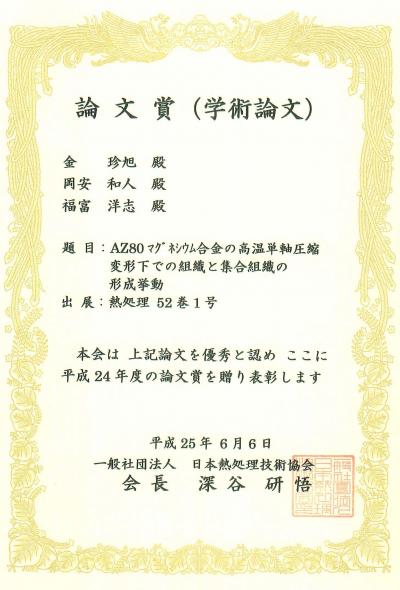 論文賞（学術論文）
金 珍旭 殿
岡安 和人 殿
福富 洋志 殿
題目：AZ80ﾏｸﾞﾈｼｳﾑ合金の高温単軸圧縮
変形下での組織と集合組織の
形成挙動
出展：熱処理 52巻1号
本会は 上記論文を優秀と認め ここに
平成24年度の論文賞を贈り表彰します
平成25年 6月6日
一般社団法人 日本熱処理技術協会
会長 深谷 研悟